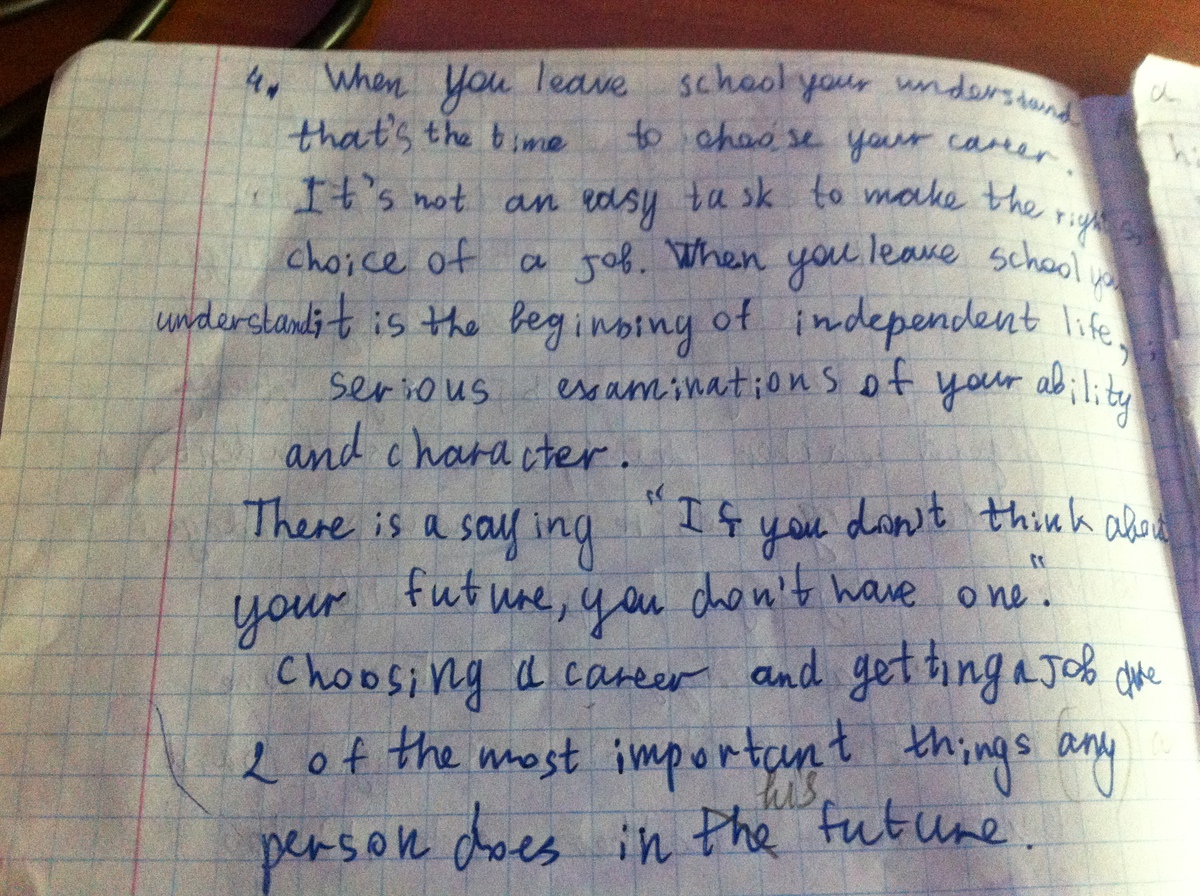 4. When you leave school your understand
that's the time to choose your career.
It's not an easy task to make the right
choice of a job. When you leave school you
understand it is the beginning of independent life,
serious examinations of your ability
and character.
There is a saying "If you don't think about
your future, you don't have one".
Choosing a career and getting a job are
2 of the most important things any
his
person does in the future.